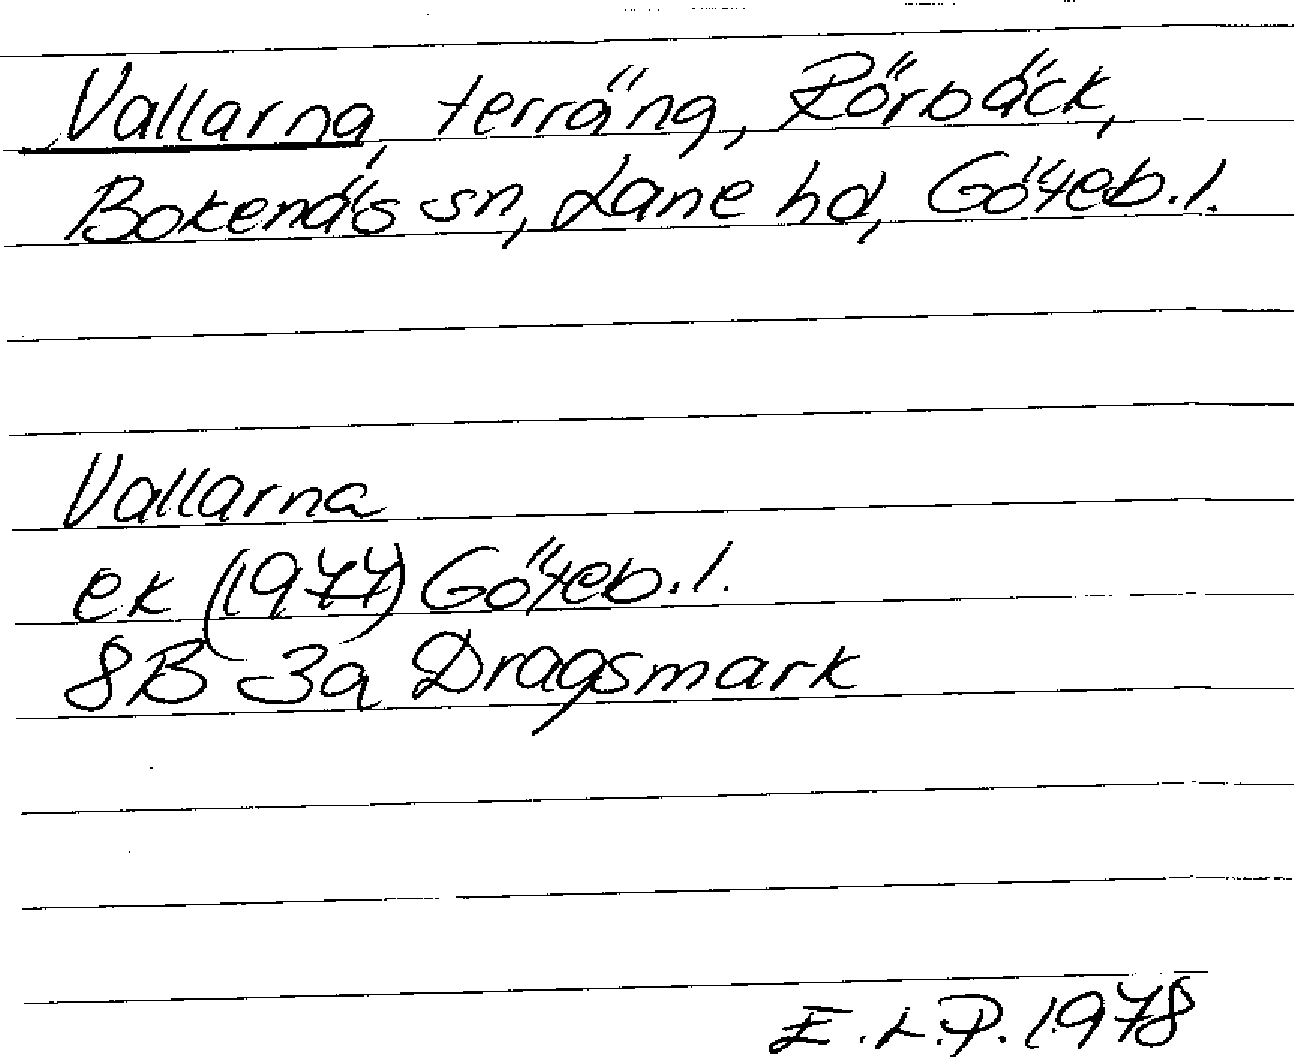 Vallarna, terräng, Rörbäck,
Bokenäs sn, Lane hd, Göteb.l.
Vallarna
ek (1977) Göteb.l.
8B 3a Dragsmark
E.L.P. 1978